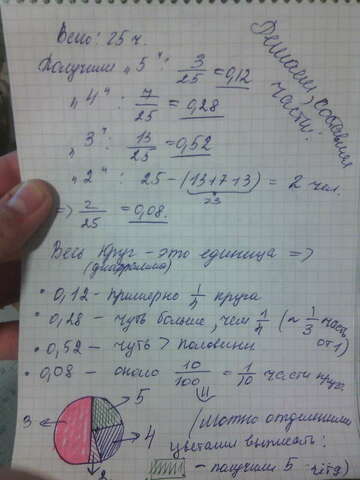 Всего: 25 ч.
Получили "5": 3/25 = 0,12
"4": 7/25 = 0,28
"3": 13/25 = 0,52
"2": 25 - (13+7+3) = 2 чел.
23
=> 2/25 = 0,08.
Делаем, составляя части:
Весь круг - это единица =>
(диаграмма)
• 0,12 - примерно 1/ круга
• 0,28 - чуть больше, чем 1/4 (~ 1/3 части от 1)
• 0,52 - чуть > половины
• 0,08 - около 10/100 = 1/10 части круга
=>
5
3
4
2
/можно отдельными
цветами выписать:
- получили 5 - )